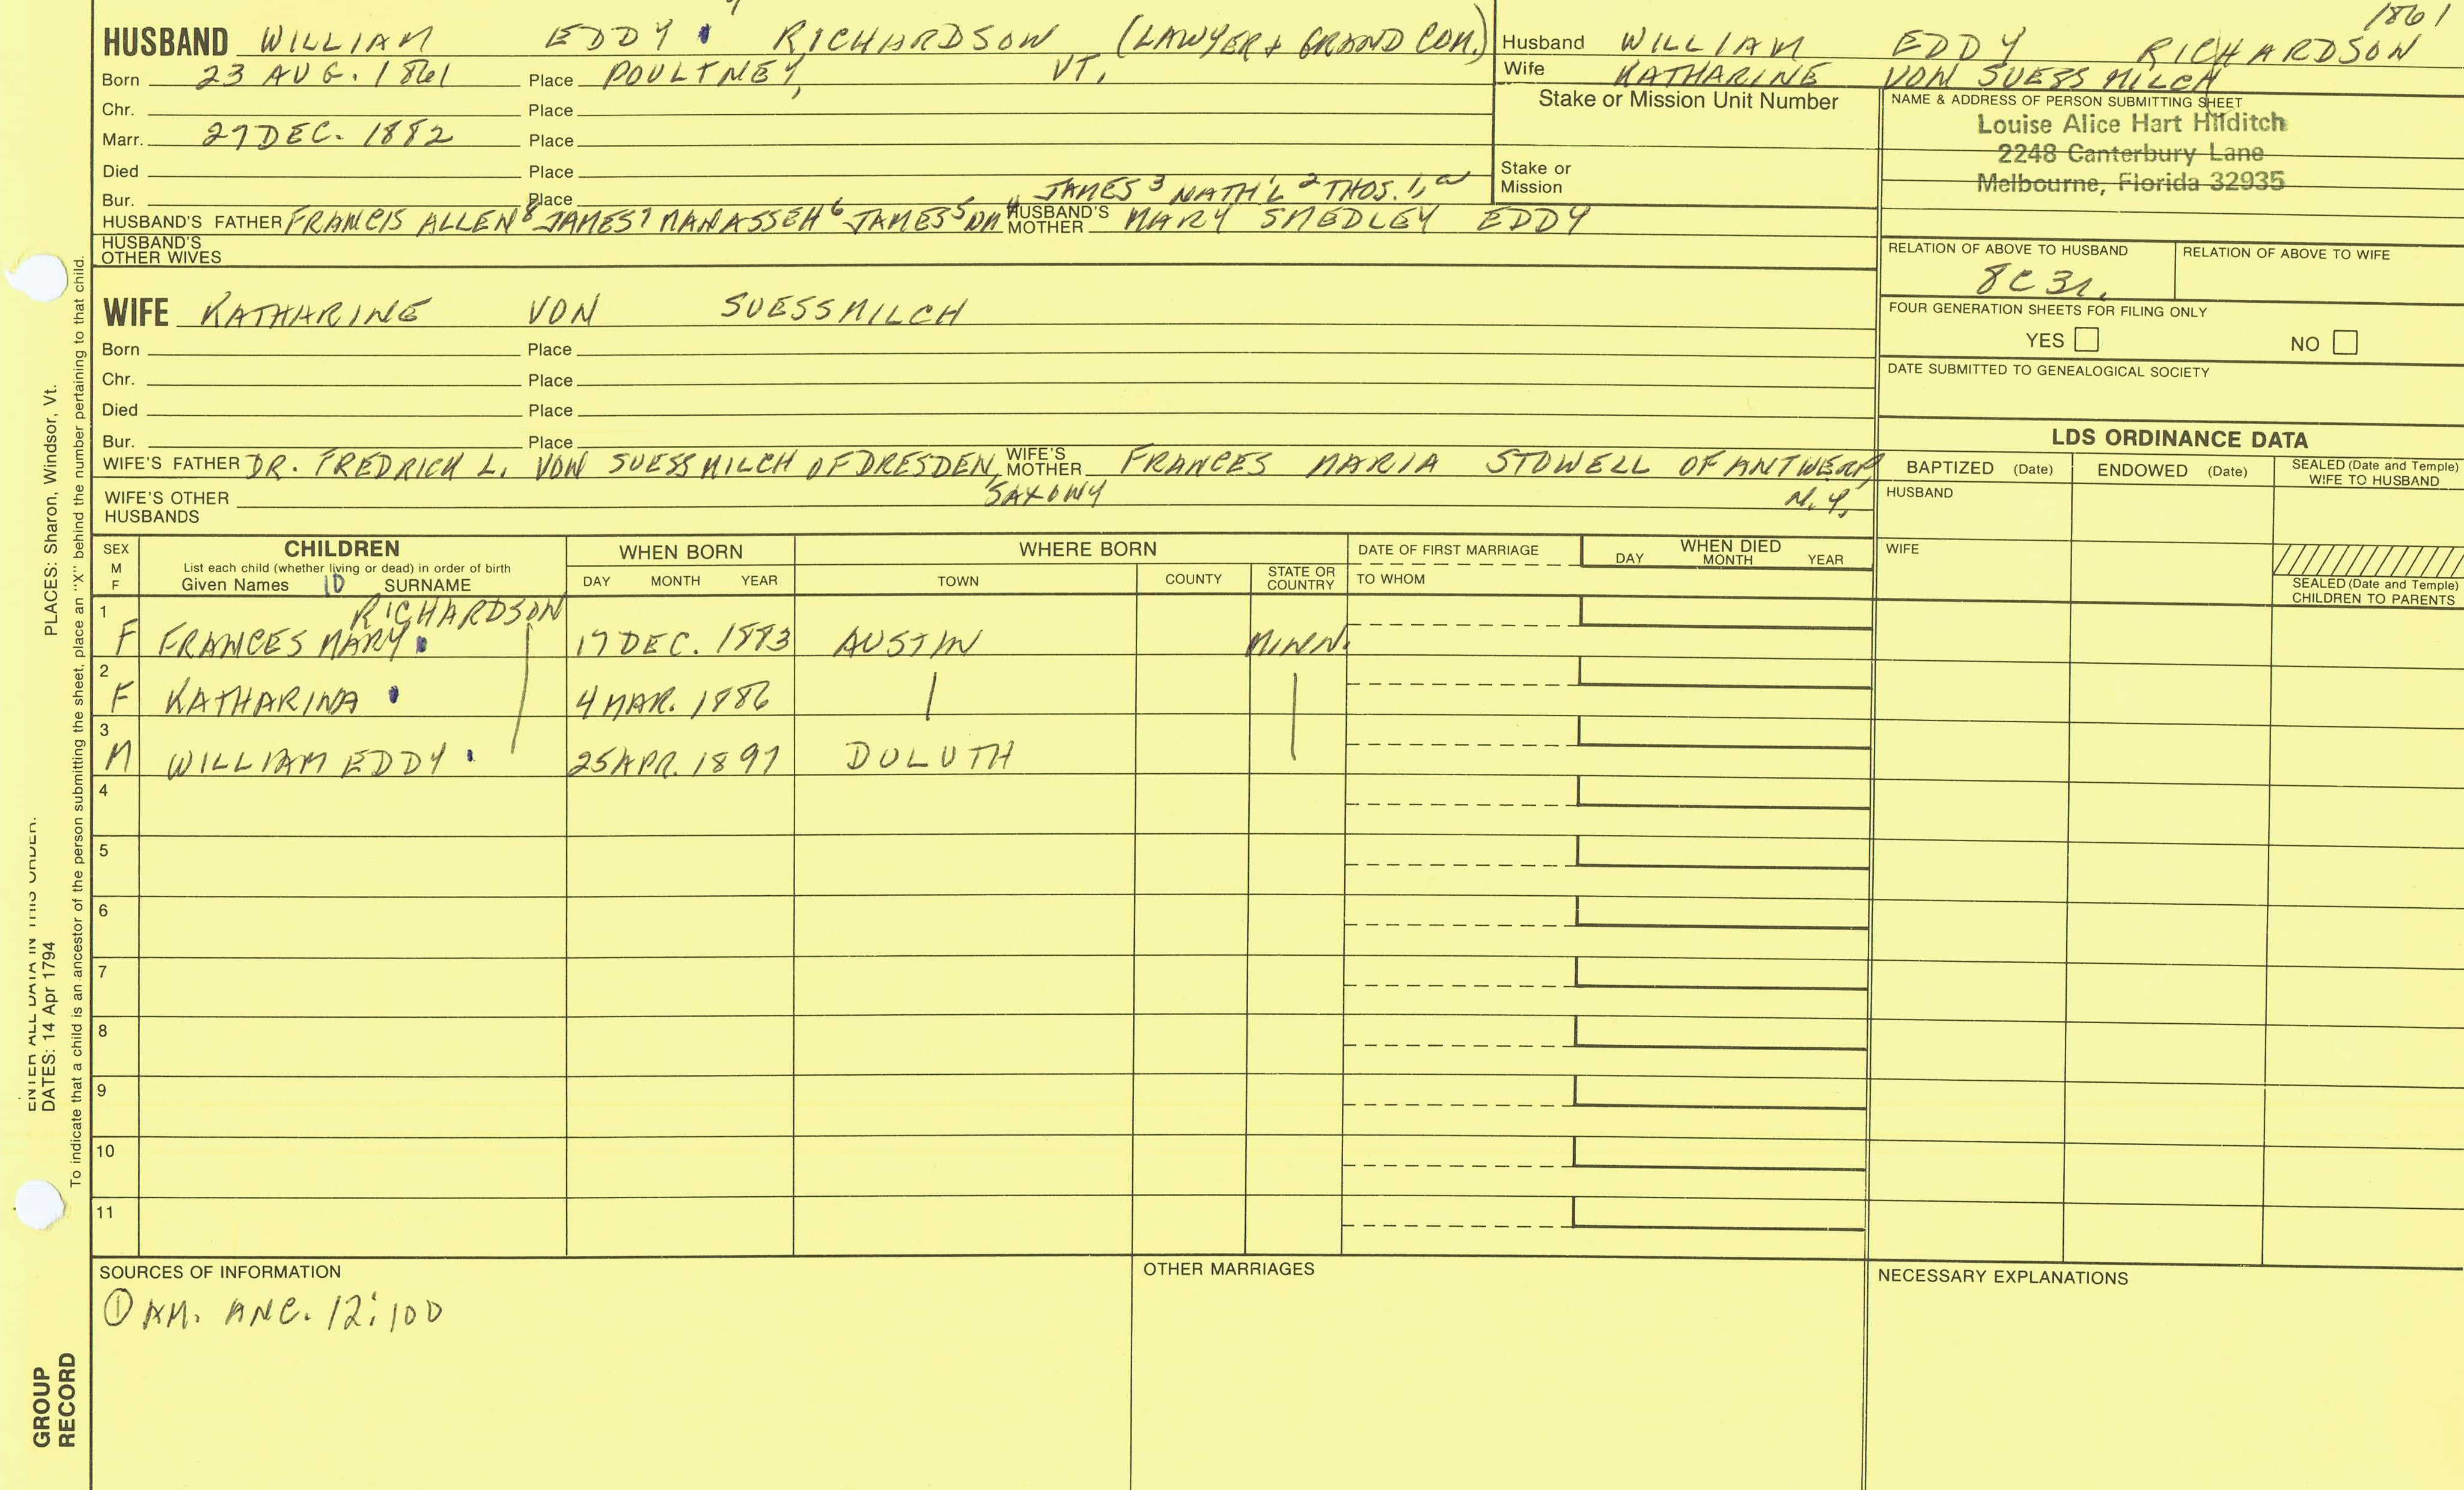 1861
HUSBAND WILLIAM EDDY RICHARDSON (LAWYER & GRAND COM.)
Born 23 AUG. 1861 Place POULTNEY, VT.
Chr. Place
Marr. 27 DEC. 1882 Place
Died Place
Bur. Place
JAMES 3 NATH'L 2 THOS. 1,
HUSBAND'S FATHER FRANCIS ALLEN 8 JAMES 7 MANASSEH 6 JAMES 5 HUSBAND'S MOTHER MARY SMEDLEY EDDY
HUSBAND'S OTHER WIVES
Husband WILLIAM EDDY RICHARDSON
Wife KATHARINE VON SUESSMILCH
Stake or Mission Unit Number
Stake or Mission
NAME & ADDRESS OF PERSON SUBMITTING SHEET
Louise Alice Hart Hilditch
2248 Canterbury Lane
Melbourne, Florida 32935
RELATION OF ABOVE TO HUSBAND
8C3r.
RELATION OF ABOVE TO WIFE
FOUR GENERATION SHEETS FOR FILING ONLY
YES NO
DATE SUBMITTED TO GENEALOGICAL SOCIETY
WIFE KATHARINE VON SUESSMILCH
Born Place
Chr. Place
Died Place
Bur. Place
WIFE'S FATHER DR. FREDRICH L. VON SUESSMILCH OF DRESDEN, SAXONY WIFE'S MOTHER FRANCES MARIA STOWELL OF ANTWERP, N.Y.
WIFE'S OTHER HUSBANDS
LDS ORDINANCE DATA
BAPTIZED (Date) ENDOWED (Date) SEALED (Date and Temple) WIFE TO HUSBAND
HUSBAND
WIFE
SEALED (Date and Temple) CHILDREN TO PARENTS
SEX M F
CHILDREN
List each child (whether living or dead) in order of birth
Given Names 10 SURNAME
WHEN BORN
DAY MONTH YEAR
WHERE BORN
TOWN COUNTY STATE OR COUNTRY
DATE OF FIRST MARRIAGE
TO WHOM
WHEN DIED
DAY MONTH YEAR
RICHARDSON
1 F FRANCES MARY 17 DEC. 1883 AUSTIN MINN.
2 F KATHARINA 4 MAR. 1886
3 M WILLIAM EDDY 25 APR. 1897 DULUTH
4
5
6
7
8
9
10
11
SOURCES OF INFORMATION
① AM. ANC. 12:100
OTHER MARRIAGES
NECESSARY EXPLANATIONS
ENTER ALL DATA IN THIS ORDER:
DATES: 14 Apr 1794
PLACES: Sharon, Windsor, Vt.
To indicate that a child is an ancestor of the person submitting the sheet, place an "X" behind the number pertaining to that child.
GROUP
RECORD